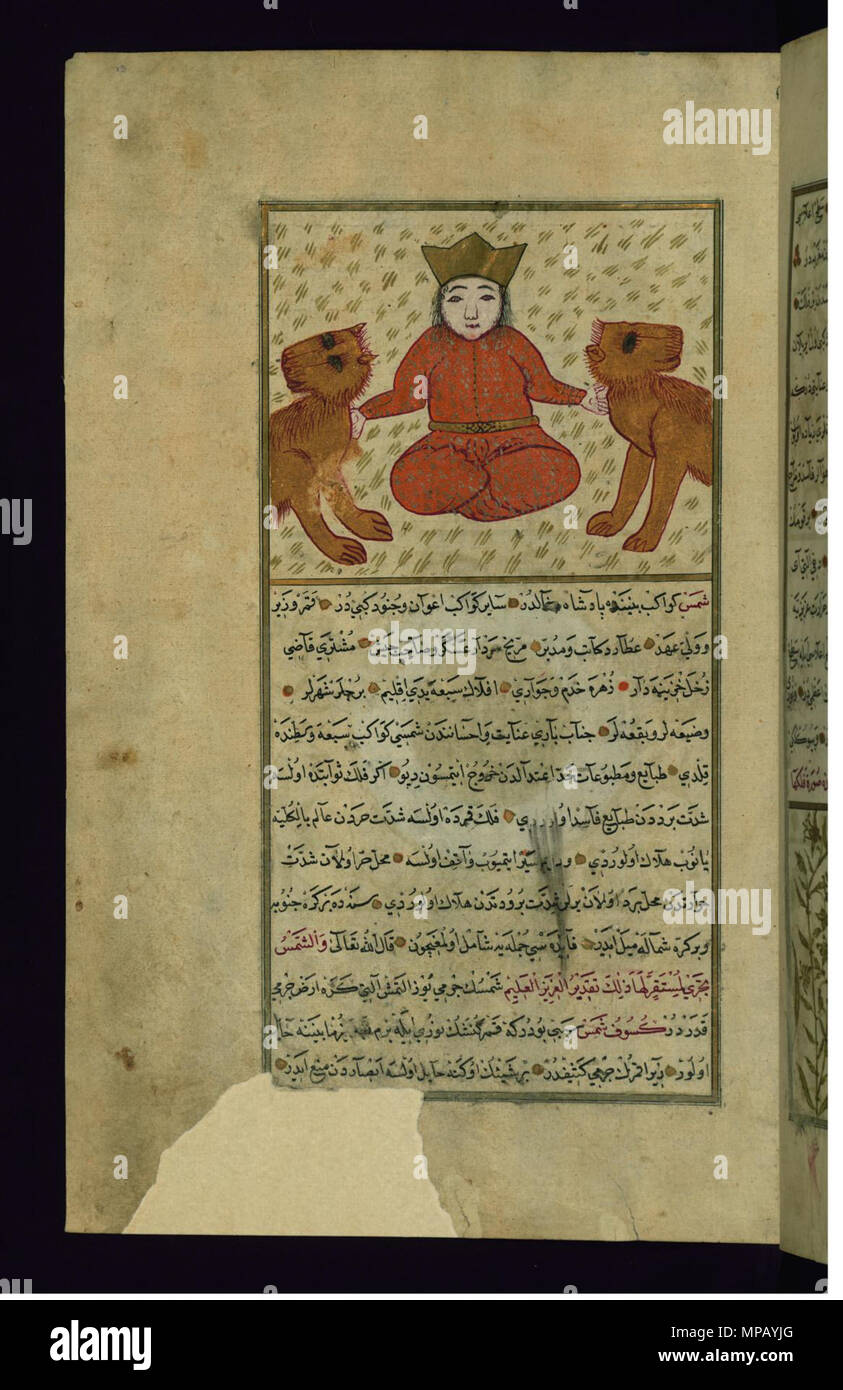 شمس كواكب بيننده پادشاه خالدر سائر كواكب اعوان وجنود كبي در قمر وزير
وولي عهد عطارد كاتب ومدبر مريخ سردار عسكر وصاحب جيش مشتري قاضي
زحل خزينه دار زهره خدم وجواري افلاك سبعه يدي اقليم برجلر شهرلر
وضيعه لر وبقعه لر جناب باري عنايت واحساننندن شمسي كواكب سبعه وسطنده
قلدي طبايع ومطبوعات حد اعتدالدن خروج ايتمسون ديو اكر فلك ثوابتده اولسه
شدت بردن طبايع فاسد اولوردي فلك قمرده اولسه شدت حردن عالم بالكليه
يانوب هلاك اولوردي ودايم سير ايتميوب واقف اولسه محل حر اولان شدت
حرارتدن محل برد اولان يرلر شدت برودتدن هلاك اولوردي سنه ده بر كره جنوبه
وبر كره شماله ميل ايدر فايده سي جمله يه شامل اولمغيچون قال الله تعالى والشمس
تجري لمستقر لها ذلك تقدير العزيز العليم شمسك جرمي يوز التمش التي كره ارض جرمي
قدردر كسوف شمس سببي بودركه قمر كنشك نوري ايله بزم بيننه حايل
اولور زيرا قمرك جرمي كثيفدر بر شيئك اوكنه حايل اولسه ابصاردن منع ايدر
alamy
Image ID: MPAYJG
www.alamy.com